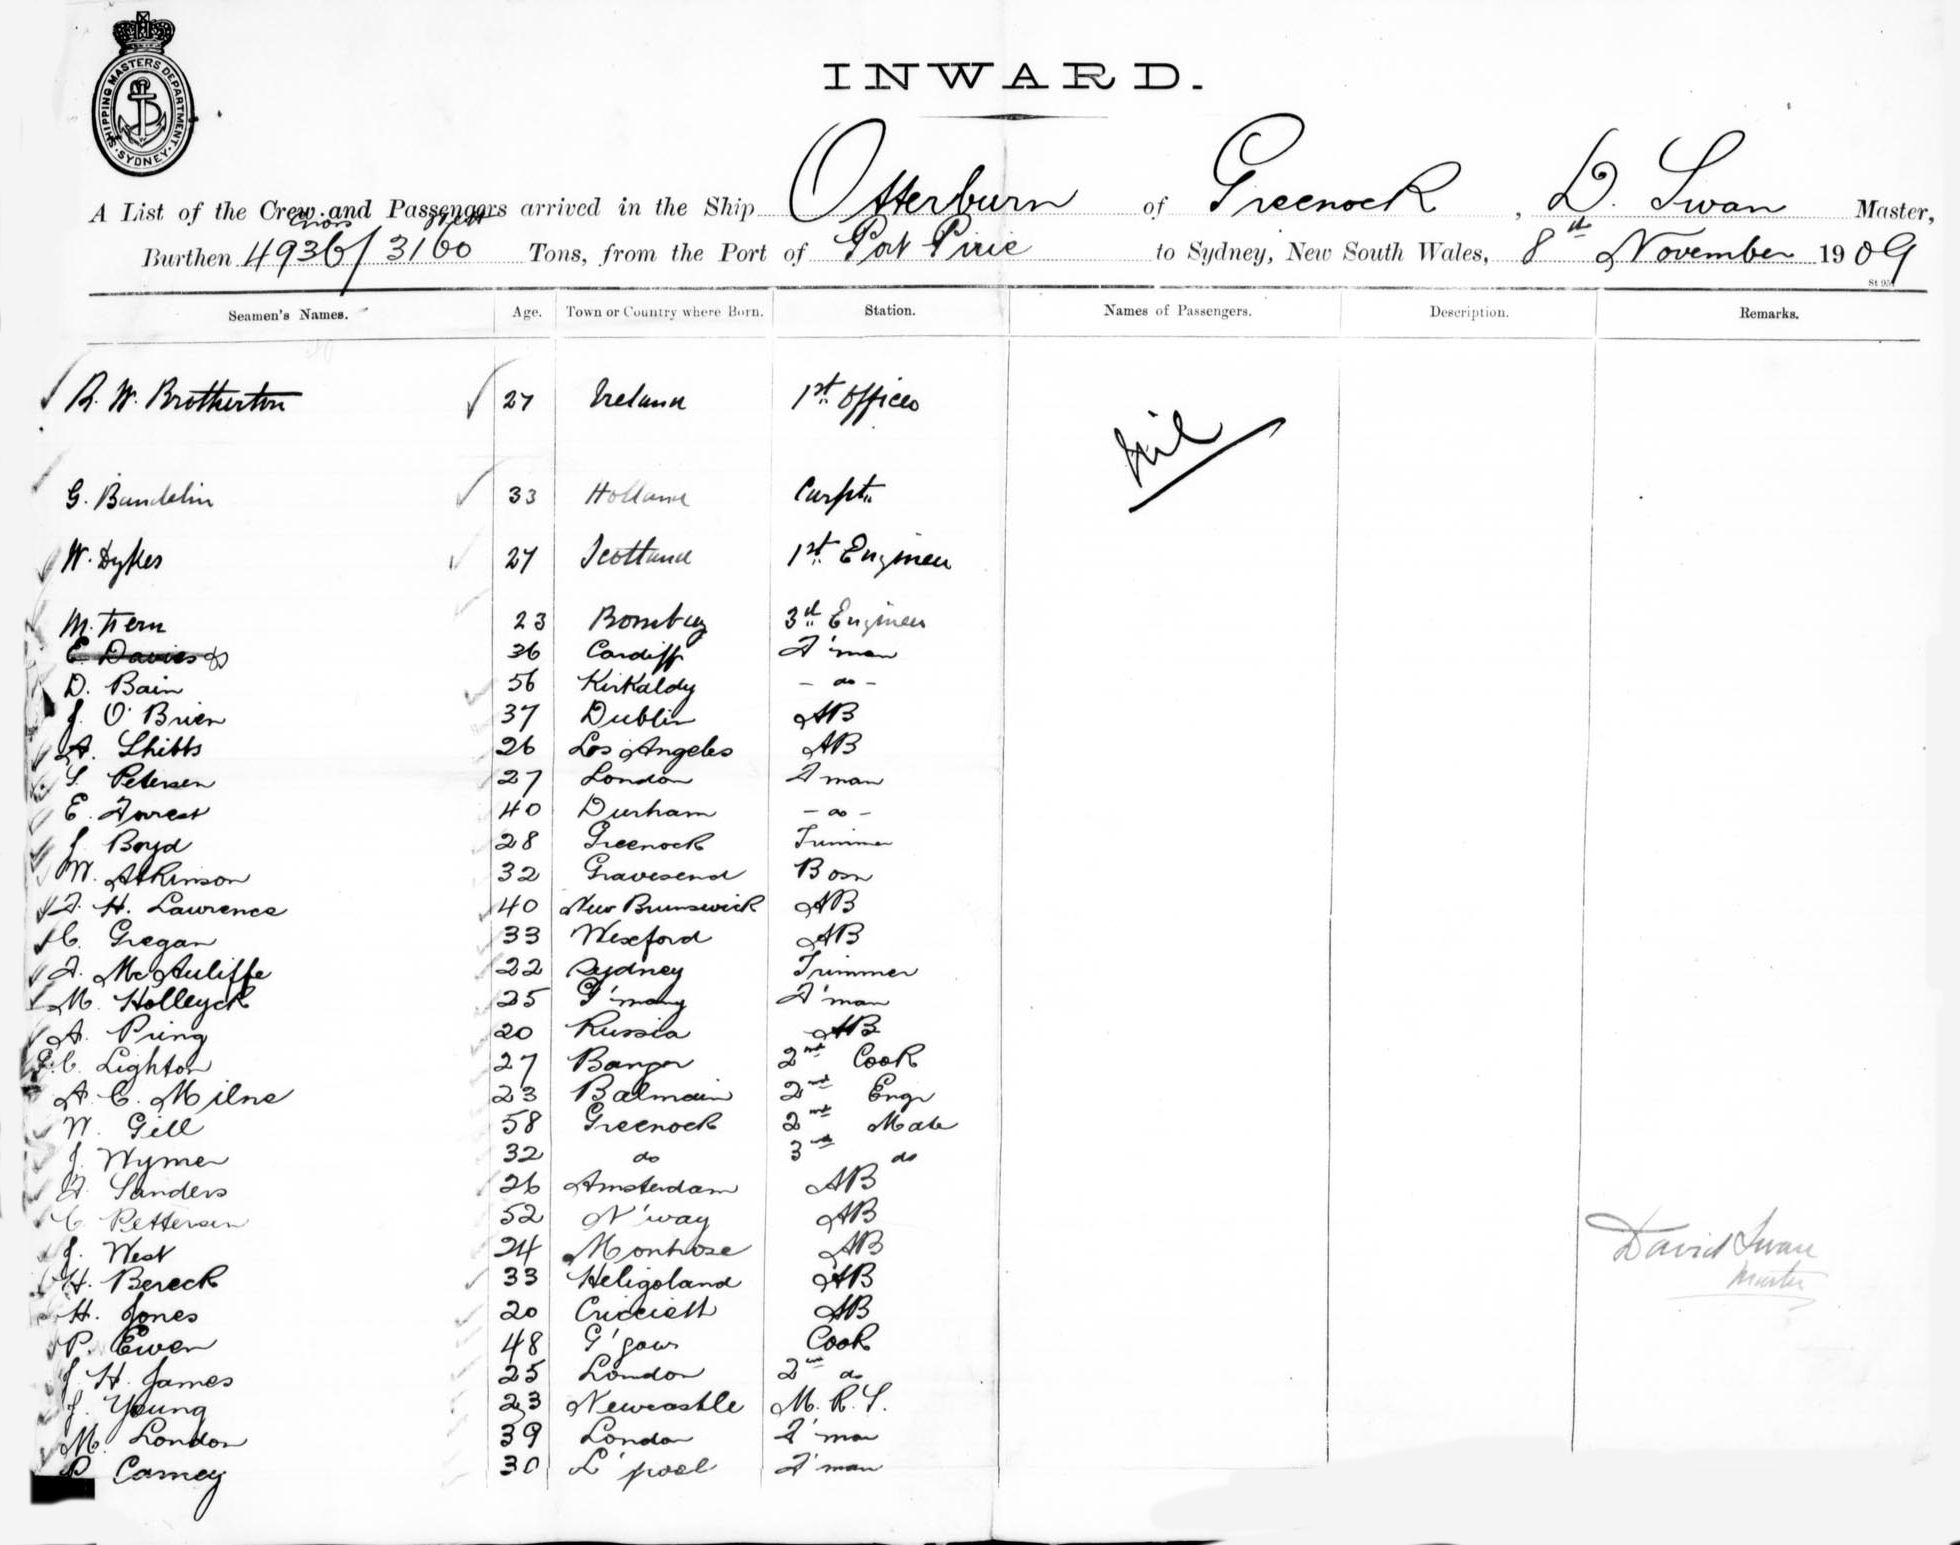 SHIPPING MASTERS DEPARTMENT.
SYDNEY
INWARD.
A List of the Crew and Passengers arrived in the Ship Otterburn of Greenock, D. Swan Master,
Gross Nett
Burthen 4936/3160 Tons, from the Port of Port Pirie to Sydney, New South Wales, 8th November 1909
St 95
Seamen's Names. Age. Town or Country where Born. Station. Names of Passengers. Description. Remarks.
R. W. Brotherton 27 Ireland 1st Officer
Nil
G. Bandelin 33 Holland Carptr
W. Dykes 27 Scotland 1st Engineer
M. Fern 23 Bombay 3rd Engineer
E. Davies 36 Cardiff F'man
D. Bain 56 Kirkaldy - do -
J. O'Brien 37 Dublin AB
A. Shibbs 26 Los Angeles AB
S. Petersen 27 London Fman
E. Forrest 40 Durham - do -
J. Boyd 28 Greenock Trimmer
W. Atkinson 32 Gravesend Bosn
F. H. Lawrence 40 New Brunswick AB
C. Gregan 33 Wexford AB
F. McAuliffe 22 Sydney Trimmer
M. Holleyck 25 G'many F'man
A. Pring 20 Russia AB
C. Lighton 27 Bangor 2nd Cook
A. C. Milne 23 Balmain 2nd Engr
W. Gill 58 Greenock 2nd Mate
J. Wymer 32 do 3rd do
F. Sanders 26 Amsterdam AB
C Pettersen 52 N'way AB
J. West 24 Montrose AB
H. Bereck 33 Heligoland AB
David Swan
Master
H. Jones 20 Criccieth AB
P. Ewen 48 G'gow Cook
J. H. James 25 London 2nd do
J. Young 23 Newcastle M. R. S.
M. London 39 London F'man
P Carney 30 L'pool F'man